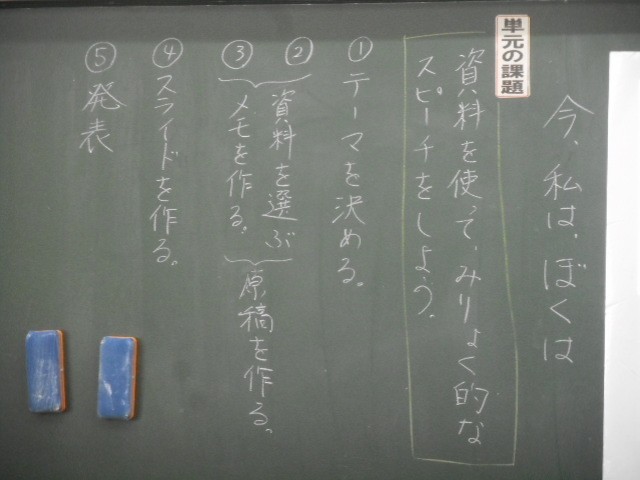 今、私は、ぼくは
単元の課題
資料を使って、みりょく的な
スピーチをしよう。
①テーマを決める。
②資料を選ぶ
③メモを作る。
原稿を作る。
④スライドを作る。
⑤発表